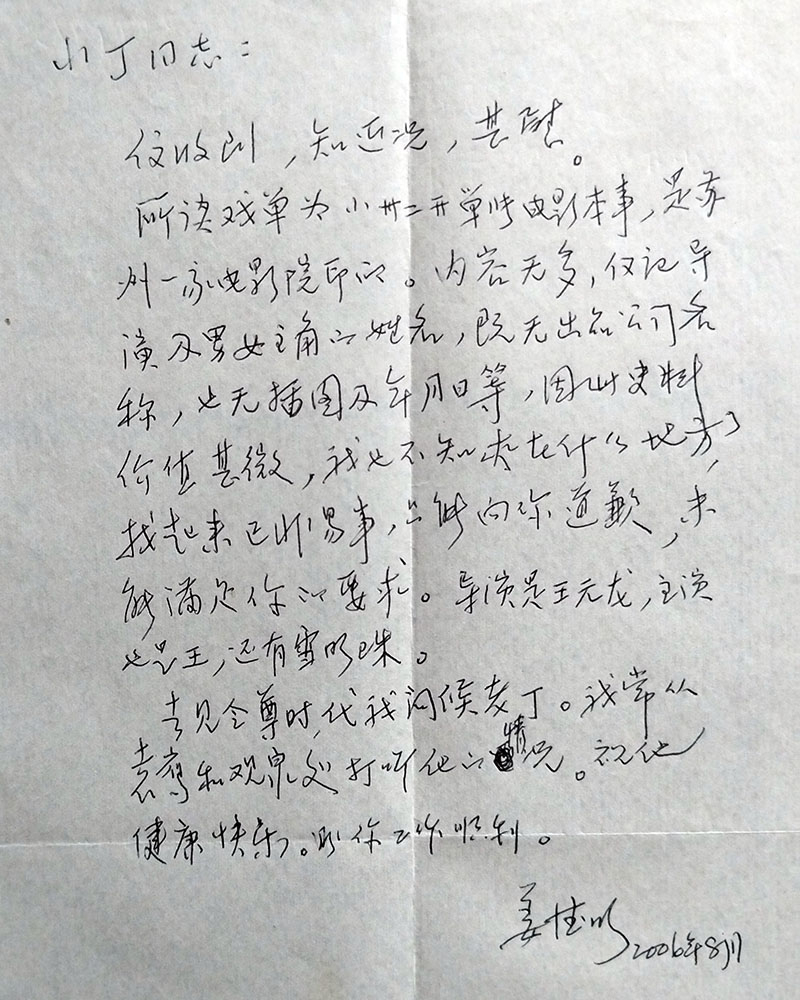 小丁同志：
信收到，知近况，甚慰。
所谈戏单为小卅二开单张电影本事，是苏
州一家电影院印的。内容无多，仅记导
演及男女主角的姓名，既无出品公司名
称，也无插图及年月日等，因此史料
价值甚微，我也不知夹在什么地方了，
找起来已非易事，只能向你道歉，未
能满足你的要求。导演是王元龙，主演
也是王，还有雪明珠。
去见令尊时，代我问候老丁。我常从
袁鹰和观泉处打听他的情况。祝他
健康快乐。盼你工作顺利。
姜德明
2006年8月